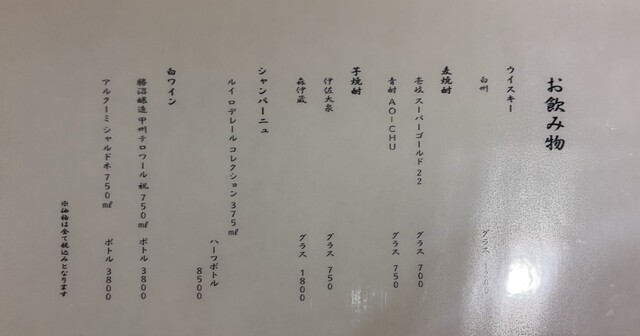 お飲み物
ウイスキー
白州 グラス 1200
麦焼酎
壱岐スーパーゴールド22 グラス 700
青酎 AO-CHU グラス 750
芋焼酎
伊佐大泉 グラス 750
森伊蔵 グラス 1800
シャンパーニュ
ルイ ロデレール コレクション 375㎖
ハーフボトル 8500
白ワイン
勝沼醸造 甲州テロワール 祝 750㎖ ボトル 3800
アルクーミ シャルドネ 750㎖ ボトル 3800
※価格は全て税込みとなります